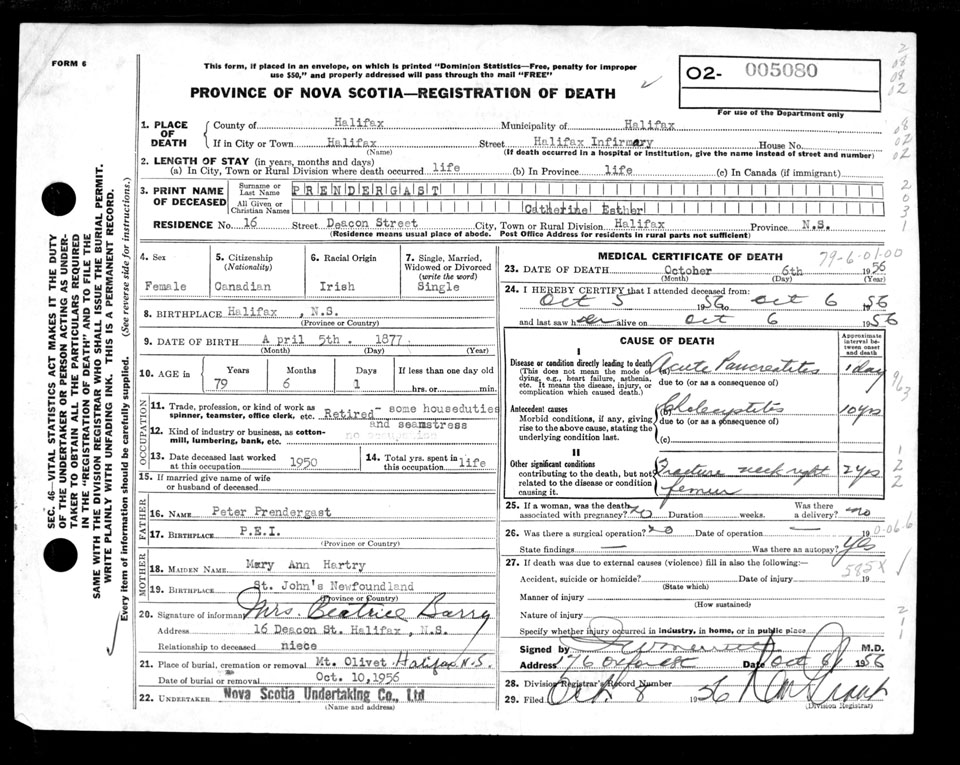 FORM 6
This form, if placed in an envelope, on which is printed "Dominion Statistics—Free, penalty for improper
use $50," and properly addressed will pass through the mail "FREE"
PROVINCE OF NOVA SCOTIA—REGISTRATION OF DEATH
O2- 005080
For use of the Department only
SEC. 46—VITAL STATISTICS ACT MAKES IT THE DUTY
OF THE UNDERTAKER OR PERSON ACTING AS UNDER-
TAKER TO OBTAIN ALL THE PARTICULARS REQUIRED
IN THE "REGISTRATION OF DEATH" AND TO FILE THE
SAME WITH THE DIVISION REGISTRAR WHO SHALL ISSUE THE BURIAL PERMIT.
WRITE PLAINLY WITH UNFADING INK. THIS IS A PERMANENT RECORD.
Every item of information should be carefully supplied. (See reverse side for instructions.)
1. PLACE OF DEATH
County of Halifax Municipality of Halifax
If in City or Town Halifax Street Halifax Infirmary House No.
(Name) (If death occurred in a hospital or institution, give the name instead of street and number)
2. LENGTH OF STAY (in years, months and days)
(a) In City, Town or Rural Division where death occurred life (b) In Province life (c) In Canada (if immigrant)
3. PRINT NAME OF DECEASED
Surname or Last Name PRENDERGAST
All Given or Christian Names Catherine Esther
RESIDENCE No. 16 Street Deacon Street City, Town or Rural Division Halifax Province N.S.
(Residence means usual place of abode. Post Office Address for residents in rural parts not sufficient)
4. Sex
Female
5. Citizenship
(Nationality)
Canadian
6. Racial Origin
Irish
7. Single, Married,
Widowed or Divorced
(write the word)
Single
8. BIRTHPLACE Halifax , N.S.
(Province or Country)
9. DATE OF BIRTH April 5th. 1877.
(Month) (Day) (Year)
10. AGE in
Years Months Days If less than one day old
79 6 1 hrs. or min.
OCCUPATION
11. Trade, profession, or kind of work as
spinner, teamster, office clerk, etc. Retired - some houseduties
and seamstress
12. Kind of industry or business, as cotton-
mill, lumbering, bank, etc. no occupation
13. Date deceased last worked
at this occupation 1950
14. Total yrs. spent in
this occupation life
15. If married give name of wife
or husband of deceased
FATHER
16. NAME Peter Prendergast
17. BIRTHPLACE P.E.I.
(Province or Country)
MOTHER
18. MAIDEN NAME Mary Ann Hartry
19. BIRTHPLACE St. John's Newfoundland
(Province or Country)
20. Signature of informant Mrs. Beatrice Barry
Address 16 Deacon St. Halifax , N.S.
Relationship to deceased niece
21. Place of burial, cremation or removal Mt. Olivet Halifax N.S.
Date of burial or removal Oct. 10,1956
22. UNDERTAKER Nova Scotia Undertaking Co., Ltd
(Name and address)
MEDICAL CERTIFICATE OF DEATH
79-6-01.00
23. DATE OF DEATH October 6th 1956
(Month) (Day) (Year)
24. I HEREBY CERTIFY that I attended deceased from:
Oct 5 1956 to Oct 6 1956
and last saw her alive on Oct 6 1956
CAUSE OF DEATH
Approximate
interval between
onset
and death
I
Disease or condition directly leading to death
(This does not mean the mode of
dying, e.g., heart failure, asthenia,
etc. It means the disease, injury, or
complication which caused death.)
(a) Acute Pancreatitis 1 day
due to (or as consequence of)
Antecedent causes
Morbid conditions, if any, giving
rise to the above cause, stating the
underlying condition last.
(b) Cholecystitis 10 yrs
due to (or as a consequence of)
(c)
II
Other significant conditions
contributing to the death, but not
related to the disease or condition
causing it.
Fracture neck right 2 yrs
femur
25. If a woman, was the death
associated with pregnancy? No Duration weeks. Was there
a delivery? no
26. Was there a surgical operation? no Date of operation — 19
State findings — Was there an autopsy? Yes
27. If death was due to external causes (violence) fill in also the following:—
585X
Accident, suicide or homicide? Date of injury 19
(State which)
Manner of injury
(How sustained)
Nature of injury
Specify whether injury occurred in industry, in home, or in public place
Signed by M.D.
Address 176 Oxford St Date Oct 8 1956
28. Division Registrar's Record Number
29. Filed Oct. 8 1956
(Division Registrar)